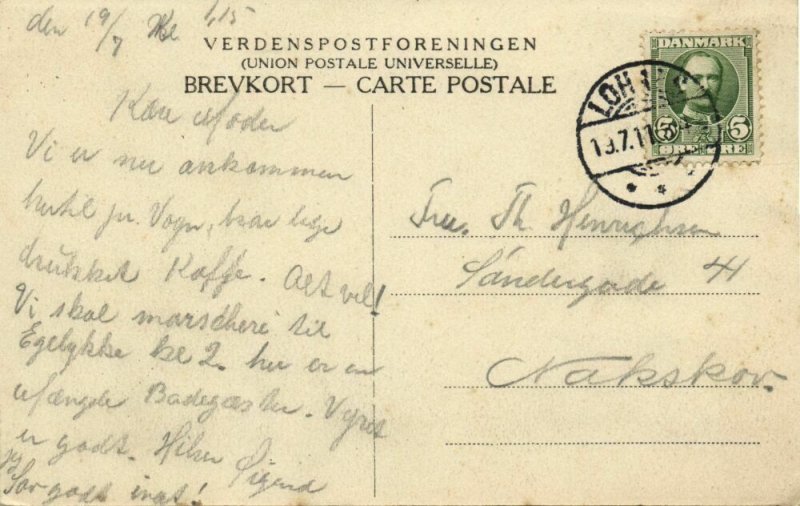 den 19/7 Kl 1,15
VERDENSPOSTFORENINGEN
(UNION POSTALE UNIVERSELLE)
BREVKORT — CARTE POSTALE
Kære Moder
Vi er nu ankommen
hertil pr. Vogn, har lige
drukket Kaffe. Alt vel!
Vi skal marschere til
Egelykke kl 2. her er en
Mængde Badegæster. Vejret
er godt. Hilsen
Sov godt inat!
DANMARK
5 5
ØRE ØRE
LOH
19.7.11
Fru. Th. Henrichsen
Søndergade 4
Nakskov.